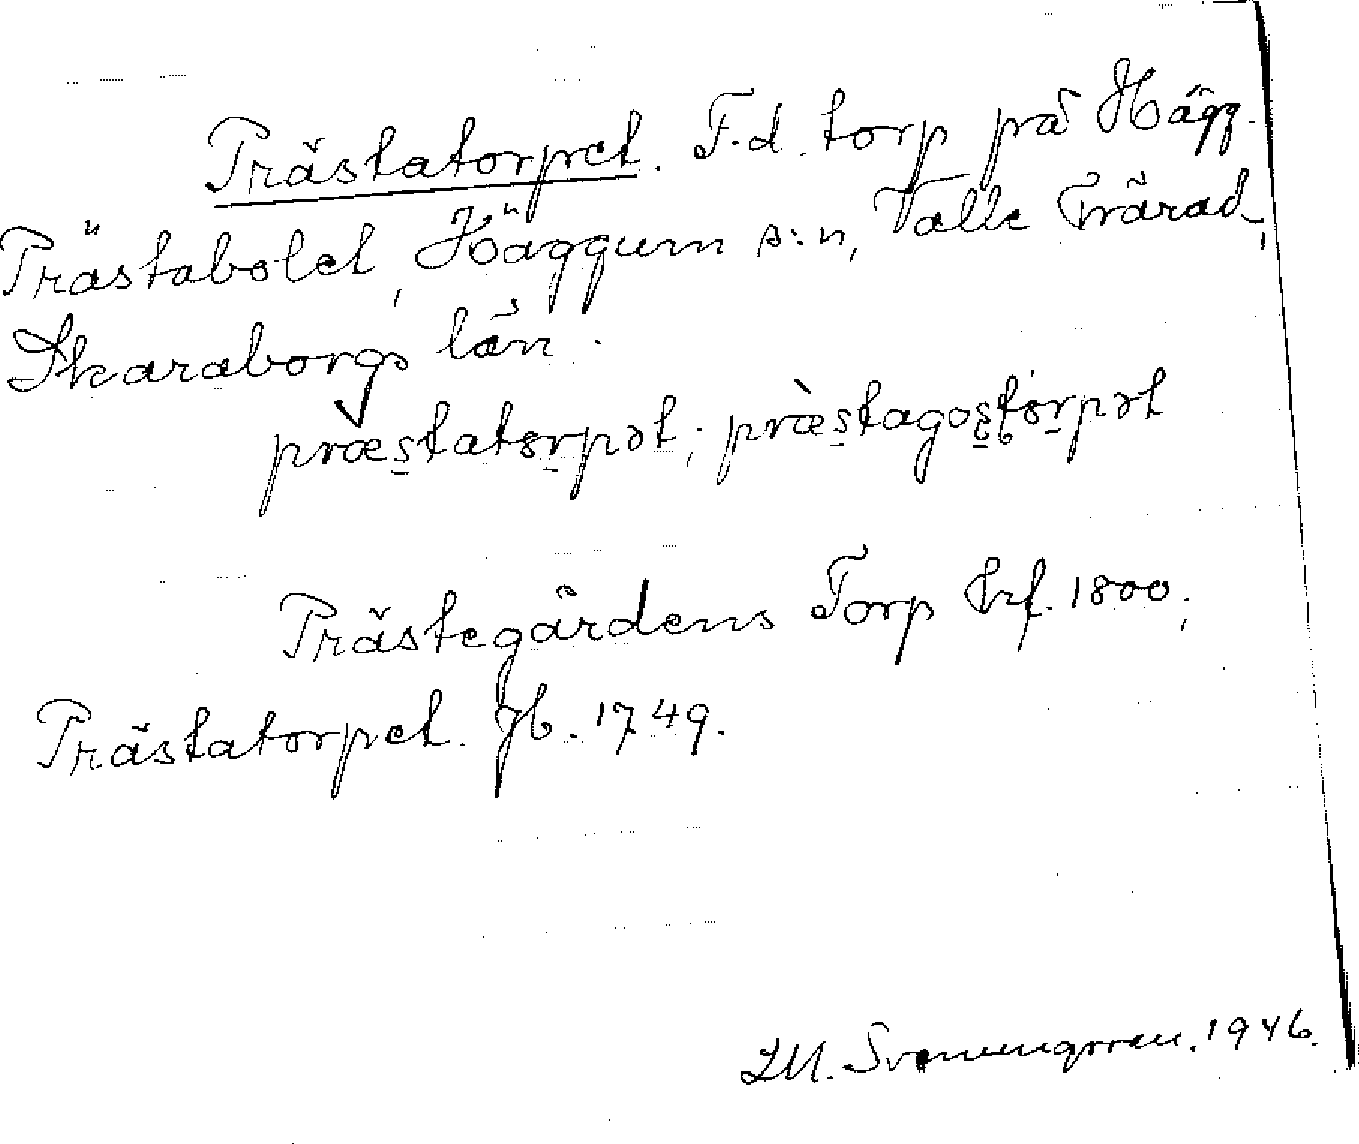 Prästatorpet. F.d. torp på Hägg.
Prästabolet, Häggum s:n, Valle härad,
Skaraborgs län.
præstatorpət; præstagoştorpət
Prästegårdens Torp hrf. 1800;
Prästatorpet. Jb. 1749.
Svenungsson. 1946.